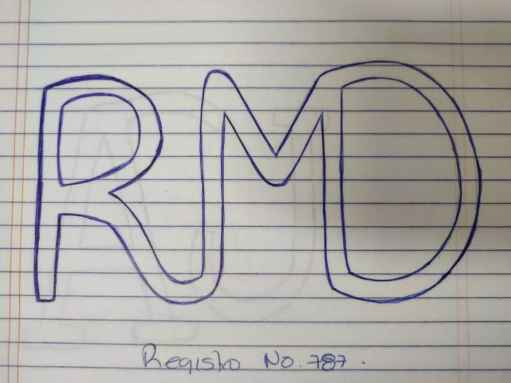 RMD
Registro No. 787.